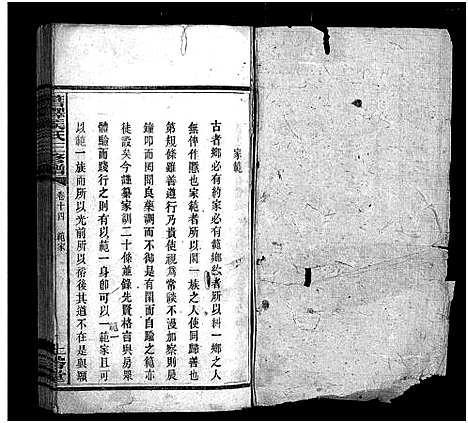 家範
古者鄉必有約家必有範鄉約者所以糾一鄉之人
無俾作慝也家範者所以閑一族之人使同歸善也
第規條雖善遵行乃貴使視為常談不漫加察則晨
鐘叩而罔聞良藥調而不御是有閑而自踰之範亦
徒設矣今謹纂家訓二十條並錄先賢格言與房眾
體驗而踐行之則有以範一身即可以範一家且可
以範一族而所以光前所以裕後其道不在是與願
範一
氏三修譜
卷十四
範家